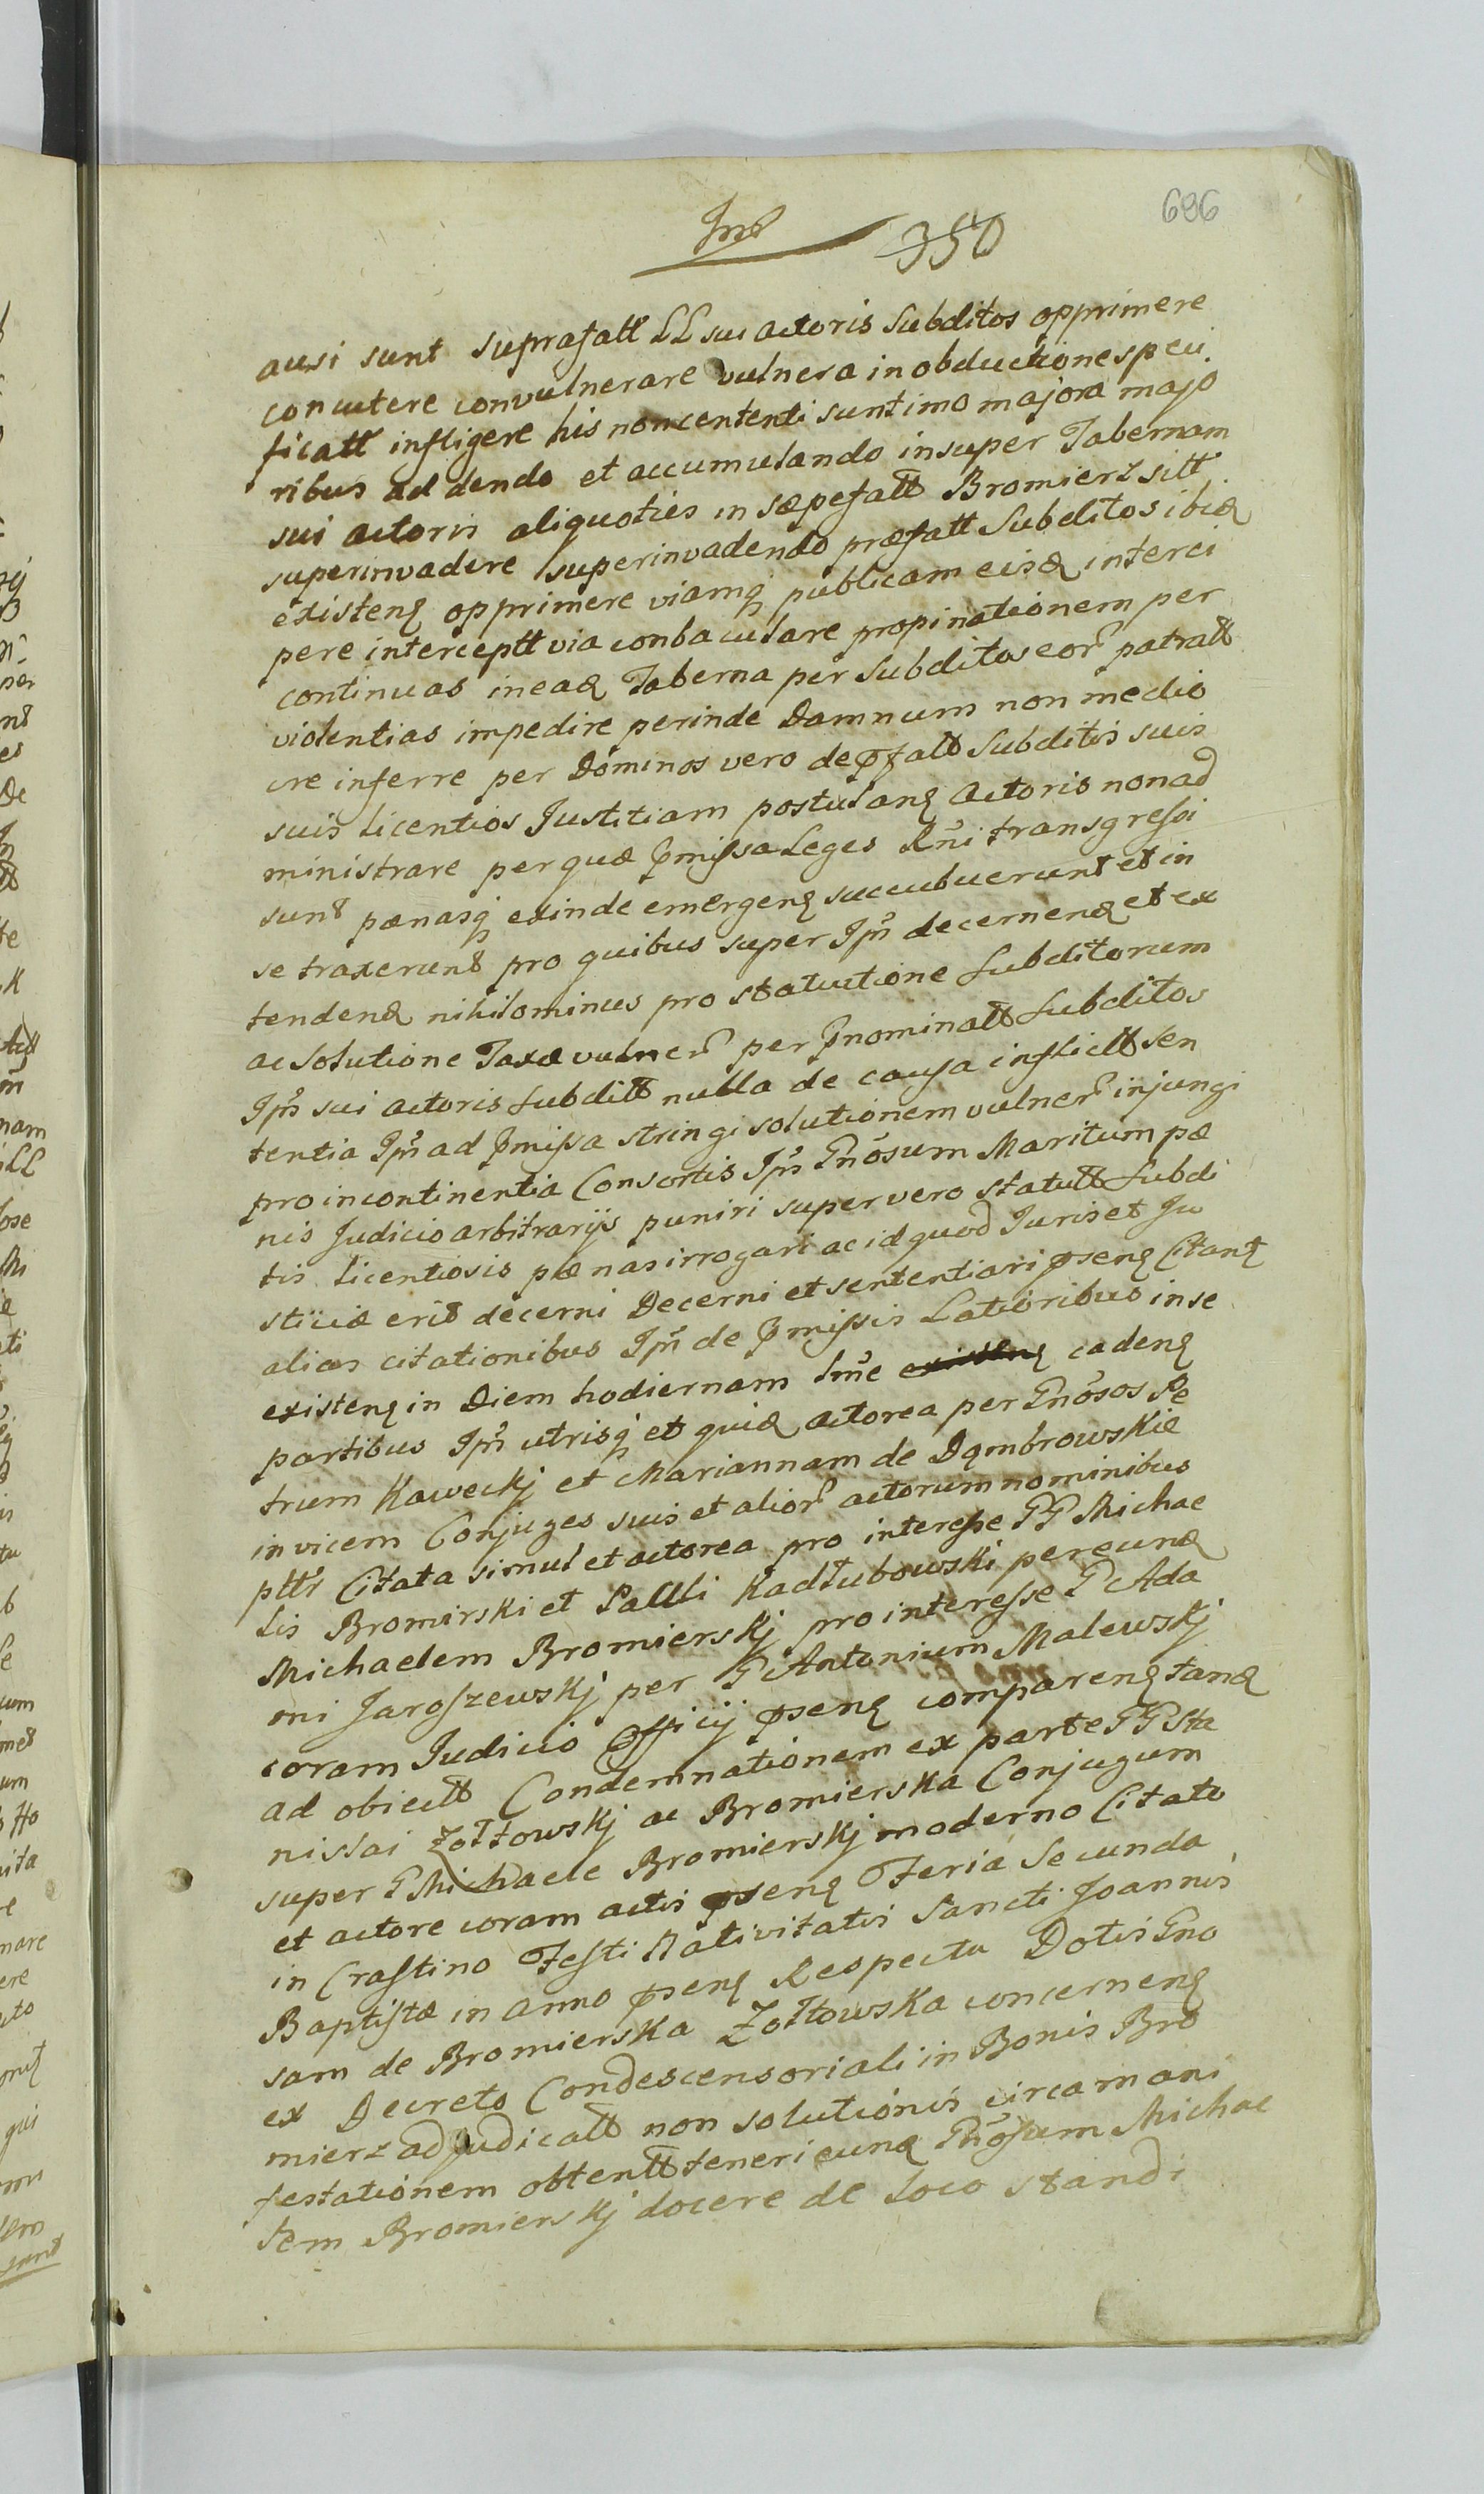 686
350
ausi sunt suprafatt LL sui actoris Subditos opprimere
concutere convulnerare vulnera in obductione speci
ficatt infligere his non contenti sunt imo majora majo
ribus addendo et accumulando insuper Tabernam
sui actoris aliquoties in sæpefatt Bromierz sitt
superinvadere superinvadendo præfatt Subditos ibid
existen opprimere viamq publicam eisd interci
pere interceptt via conbaculare propinationem per
continuas in ead Taberna per Subditos eor patratt
violentias impedire perinde Damnum non medio
cre inferre per Dominos vero de pfatt Subditis suis
suis licentios Justitiam postulan Actoris non ad
ministrare per quæ pmissa Leges Rni transgressi
sunt pænasq exinde emergen succubuerunt et in
se traxerunt pro quibus super Ipŝ decernend et ex
tendend nihilominus pro statuitione Subditorum
ac Solutione Taxæ vulner per pnominatt Subditos
Ipŝ sui actoris Subditt nulla de causa inflictt Sen
tentia Ipŝ ad pmissa stringi solutionem vulner injungi
pro incontinentia Consortis Ipŝ Gnosum Maritum pæ
nis Judicio arbitrarijs puniri super vero statutt Subdi
tis licentiosis pænas irrogari ac id quod Juris et Ju
sticiæ erit decerni Decerni et sententiari psen Citan
alias citationibus Ipŝ de pmissis Latioribus in se
existen in Diem hodiernam lme existen caden
partibus Ipŝ utrisq et quid actorea per Gnosos Pe
trum Kaweckj et Mariannam de Dąmbrowskie
invicem Conjuges suis et alior actorum nominibus
pttr Citata simul et actorea pro interesse GG Michae
lis Bromirski et Pauli Kadłubowski per eund
Michaelem Bromierskj pro interesse G Ada
mi Jaroszewskj per G Antonium Malewskj
coram Judicio Officij psen comparen tand
ad obiectt Condemnationem ex parte GG Sta
nislai Zołtowskj ac Bromierska Conjugum
super G Michaele Bromierskj moderno Citato
et actore coram actis psen Feria Secunda
in Crastino Festi Nativitatis Sancti Joannis
Baptistæ in anno psen Respectu Dotis Gno
sam de Bromierska Zołtowska concernen
ex Decreto Condescensoriali in Bonis Bro
mierz adjudicatt non solutionis circa mani
festationem obtentt teneri eund Gnosum Michae
lem Bromierskj docere de loco standi